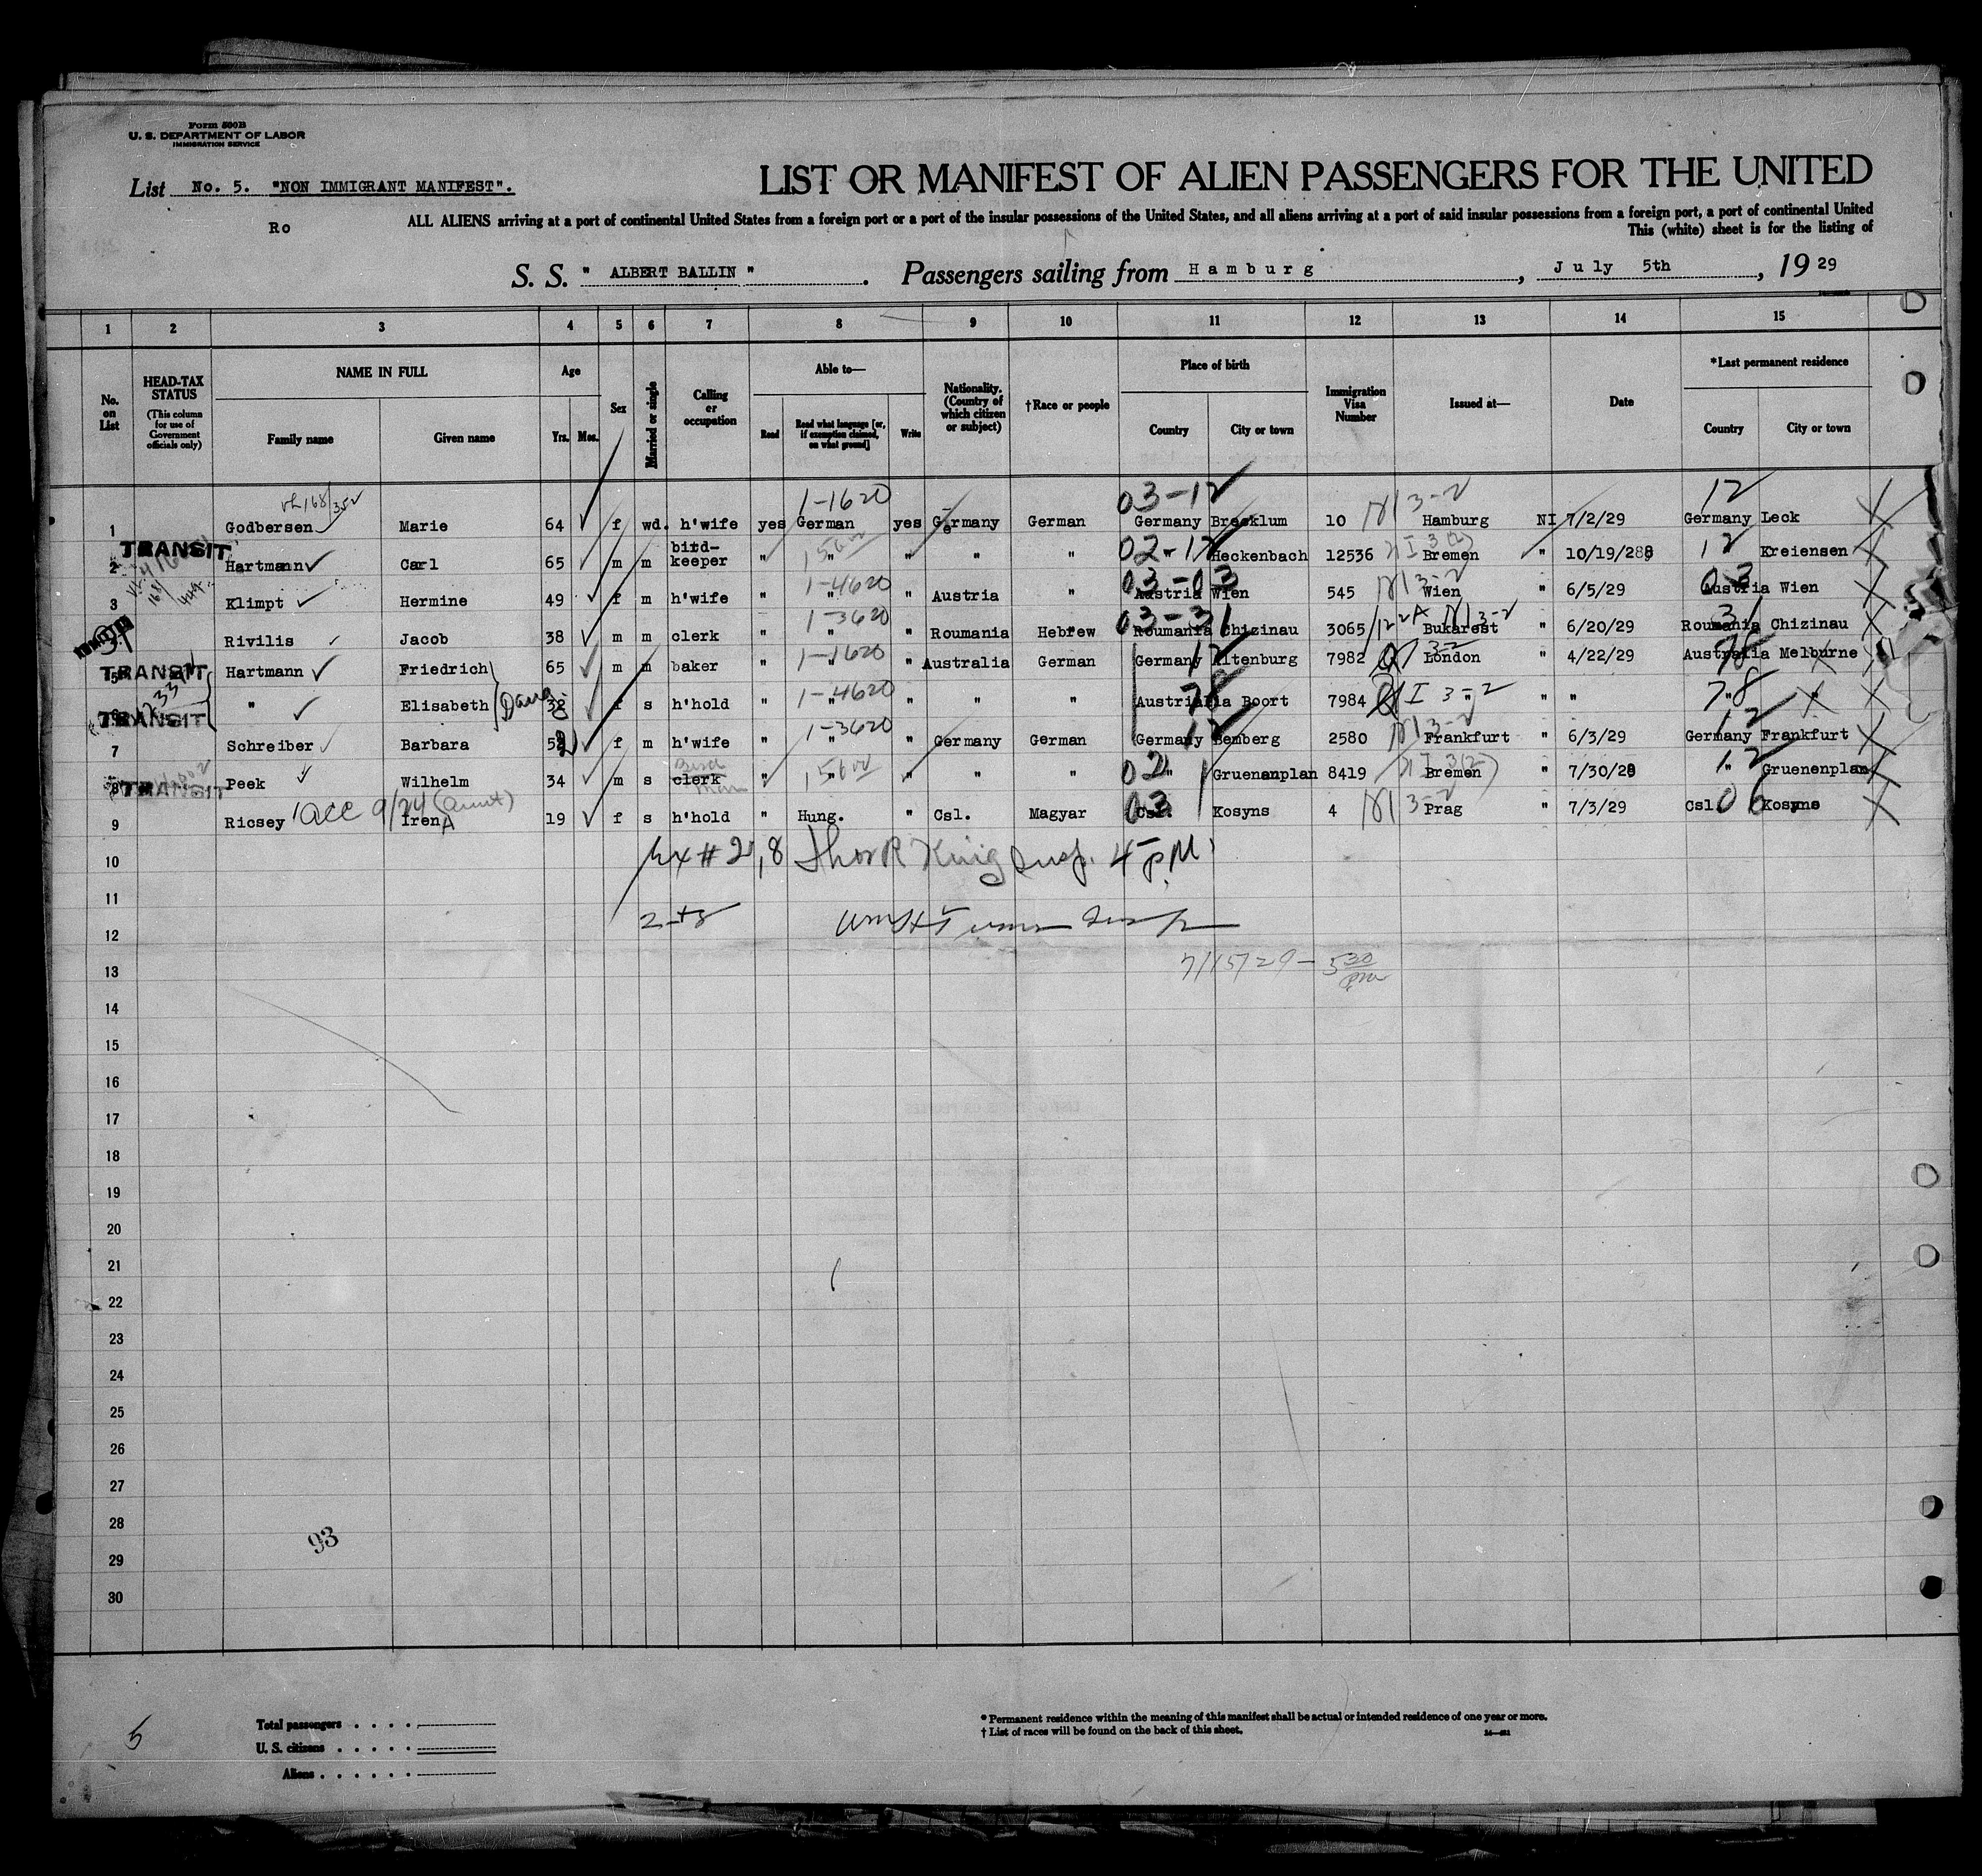 Form 500B
U. S. DEPARTMENT OF LABOR
IMMIGRATION SERVICE
List No. 5. "NON IMMIGRANT MANIFEST".
Ro
LIST OR MANIFEST OF ALIEN PASSENGERS FOR THE UNITED
ALL ALIENS arriving at a port of continental United States from a foreign port or a port of the insular possessions of the United States, and all aliens arriving at a port of said insular possessions from a foreign port, a port of continental United
This (white) sheet is for the listing of
S. S. " ALBERT BALLIN ". Passengers sailing from Hamburg, July 5th, 19 29
1 2 3 4 5 6 7 8 9 10 11 12 13 14 15
No. on List
HEAD-TAX STATUS (This column for use of Government officials only)
NAME IN FULL Family name Given name
Age Yrs. Mos.
Sex
Married or single
Calling or occupation
Able to— Read Read what language [or, if exemption claimed, on what ground] Write
Nationality. (Country of which citizen or subject)
†Race or people
Place of birth Country City or town
Immigration Visa Number
Issued at—
Date
*Last permanent residence Country City or town
1-1620 03-12 3-2 12
1 Godbersen Marie 64 f wd. h'wife yes German yes Germany German Germany Brecklum 10 Hamburg NI 7/2/29 Germany Leck
TRANSIT 02-12 12
2 Hartmann Carl 65 m m bird-keeper " " " " " Heckenbach 12536 Bremen " 10/19/28 Kreiensen
1-4620 03-03 3-2 03
3 Klimpt Hermine 49 f m h'wife " " " Austria " Austria Wien 545 Wien " 6/5/29 Austria Wien
1-3620 03-31 3-2 31
Rivilis Jacob 38 m m clerk " " " Roumania Hebrew Roumania Chizinau 3065 Bukarest " 6/20/29 Roumania Chizinau
TRANSIT 1-1620 12 3-2 78
5 Hartmann Friedrich 65 m m baker " " " Australia German Germany Altenburg 7982 London " 4/22/29 Australia Melburne
TRANSIT 1-4620 78 3-2 78
" Elisabeth 32 f s h'hold " " " " " Australia Boort 7984 " " " "
1-3620 12 3-2 12
7 Schreiber Barbara f m h'wife " " " Germany German Germany Bemberg 2580 Frankfurt " 6/3/29 Germany Frankfurt
TRANSIT 02 12
8 Peek Wilhelm 34 m s clerk Bird man " " " " " " Gruenenplan 8419 Bremen " 7/30/28 " Gruenenplan
acc 9/24 (aunt) 03 3-2 06
9 Ricsey Iren A 19 f s h'hold " Hung. " Csl. Magyar Csl. Kosyns 4 Prag " 7/3/29 Csl. Kosyns
10 #2,8 King Insp. 4 PM.
11
12 2+8
13 7/15/29 - 5 30 pm
14
15
16
17
18
19
20
21
22
23
24
25
26
27
28
29
30
93
5
Total passengers
U. S. citizens
Aliens
* Permanent residence within the meaning of this manifest shall be actual or intended residence of one year or more.
† List of races will be found on the back of this sheet.